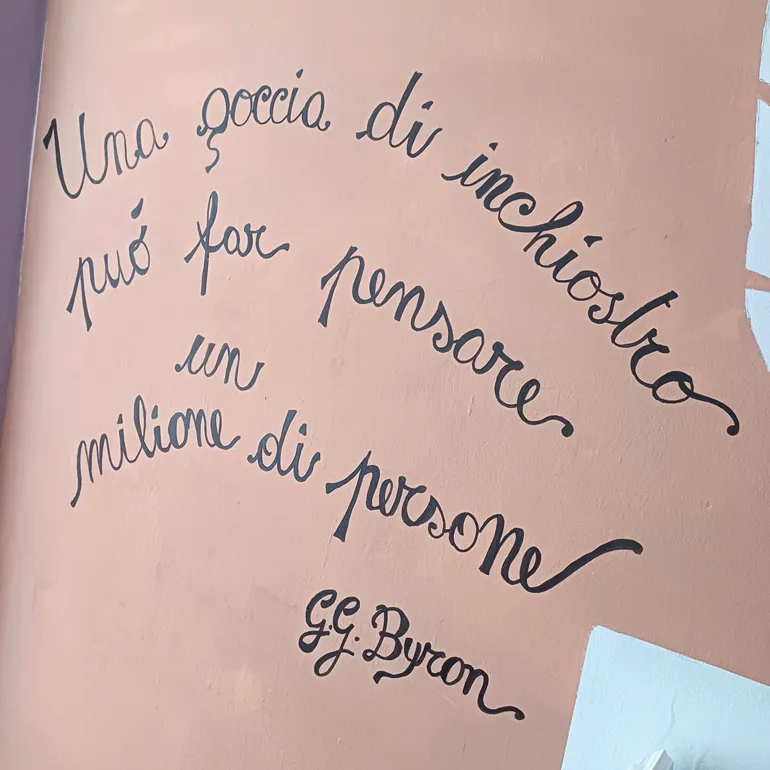 Una goccia di inchiostro
puó far pensare
un
milione di persone
G.G. Byron